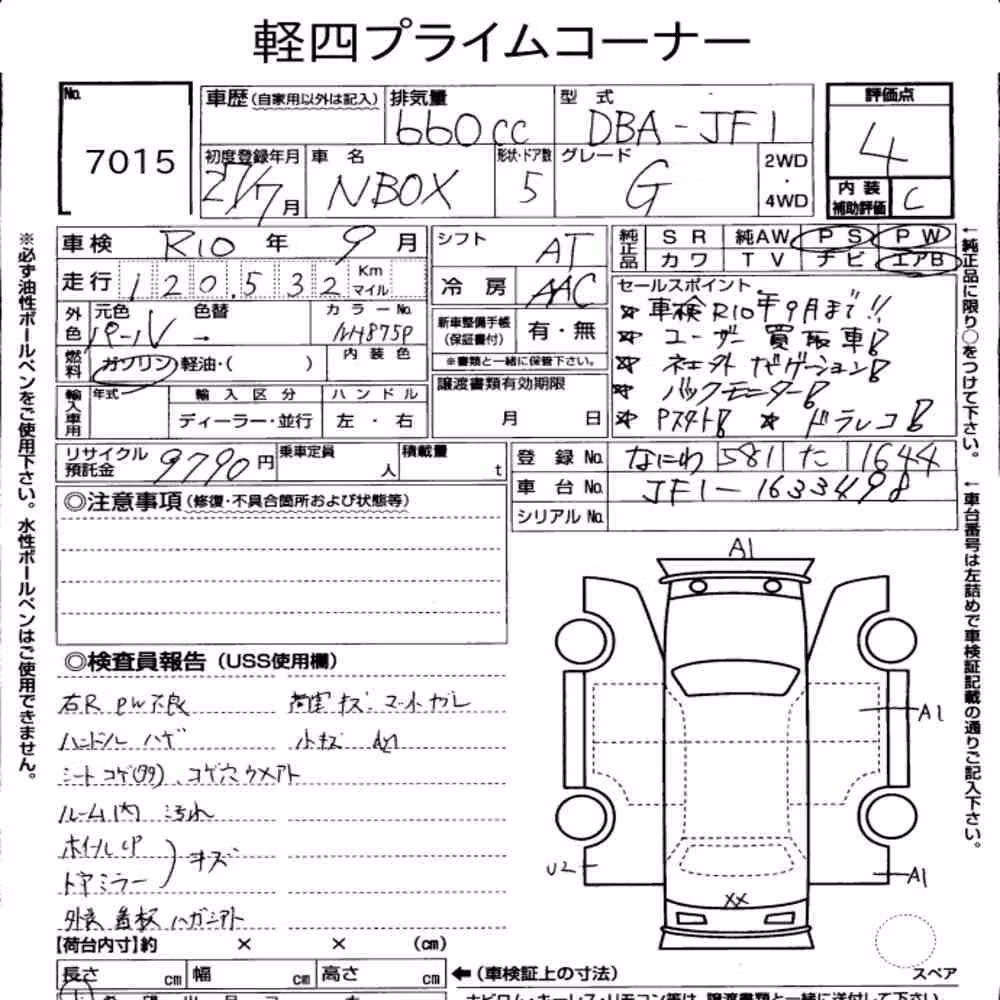 軽四プライムコーナー
No. 7015
車歴 (自家用以外は記入)
排気量 660cc
型式 DBA-JF1
評価点 4
初度登録年月 27/7月
車名 NBOX
形状・ドア数 5
グレード G
2WD・4WD
内装補助評価 C
※必ず油性ボールペンをご使用下さい。水性ボールペンはご使用できません。
車検 R10年 9月
シフト AT
純正品 SR 純AW PS PW
カワ TV ナビ エアB
走行 120,532 Km マイル
冷房 AAC
セールスポイント
☆車検R10年9月まで!!
☆ユーザー買取車
☆ネェ外ナビゲーション
☆バックモニター
☆Pスタート ☆ドラレコ
外色 元色 パール 色替 →
カラーNo. NH875P
新車整備手帳 (保証書付) 有・無
※書類と一緒に保管下さい。
燃料 ガソリン 軽油・( )
内装色
譲渡書類有効期限 月 日
輸入車用 年式 輸入区分 ディーラー・並行
ハンドル 左・右
←純正品に限り○をつけて下さい。
←車台番号は左詰めで車検証記載の通りご記入下さい。
リサイクル預託金 9790円
乗車定員 人
積載量 t
登録No. なにわ 581 た 1644
車台No. JF1-1633498
シリアルNo.
◎注意事項 (修復・不具合箇所および状態等)
◎検査員報告 (USS使用欄)
右R PW不良
荷室キズ マーカーカレ
ハンドル ハゲ
小キズ
シートコゲ(99)、コゲ穴ウメアト
ルーム内 汚れ
ホイールCP
ドアミラー
キズ
外装 看板ハガシアト
A1
A1
U2
A1
XX
スペア
【荷台内寸】約 × × (cm)
長さ cm 幅 cm 高さ cm
←(車検証上の寸法)